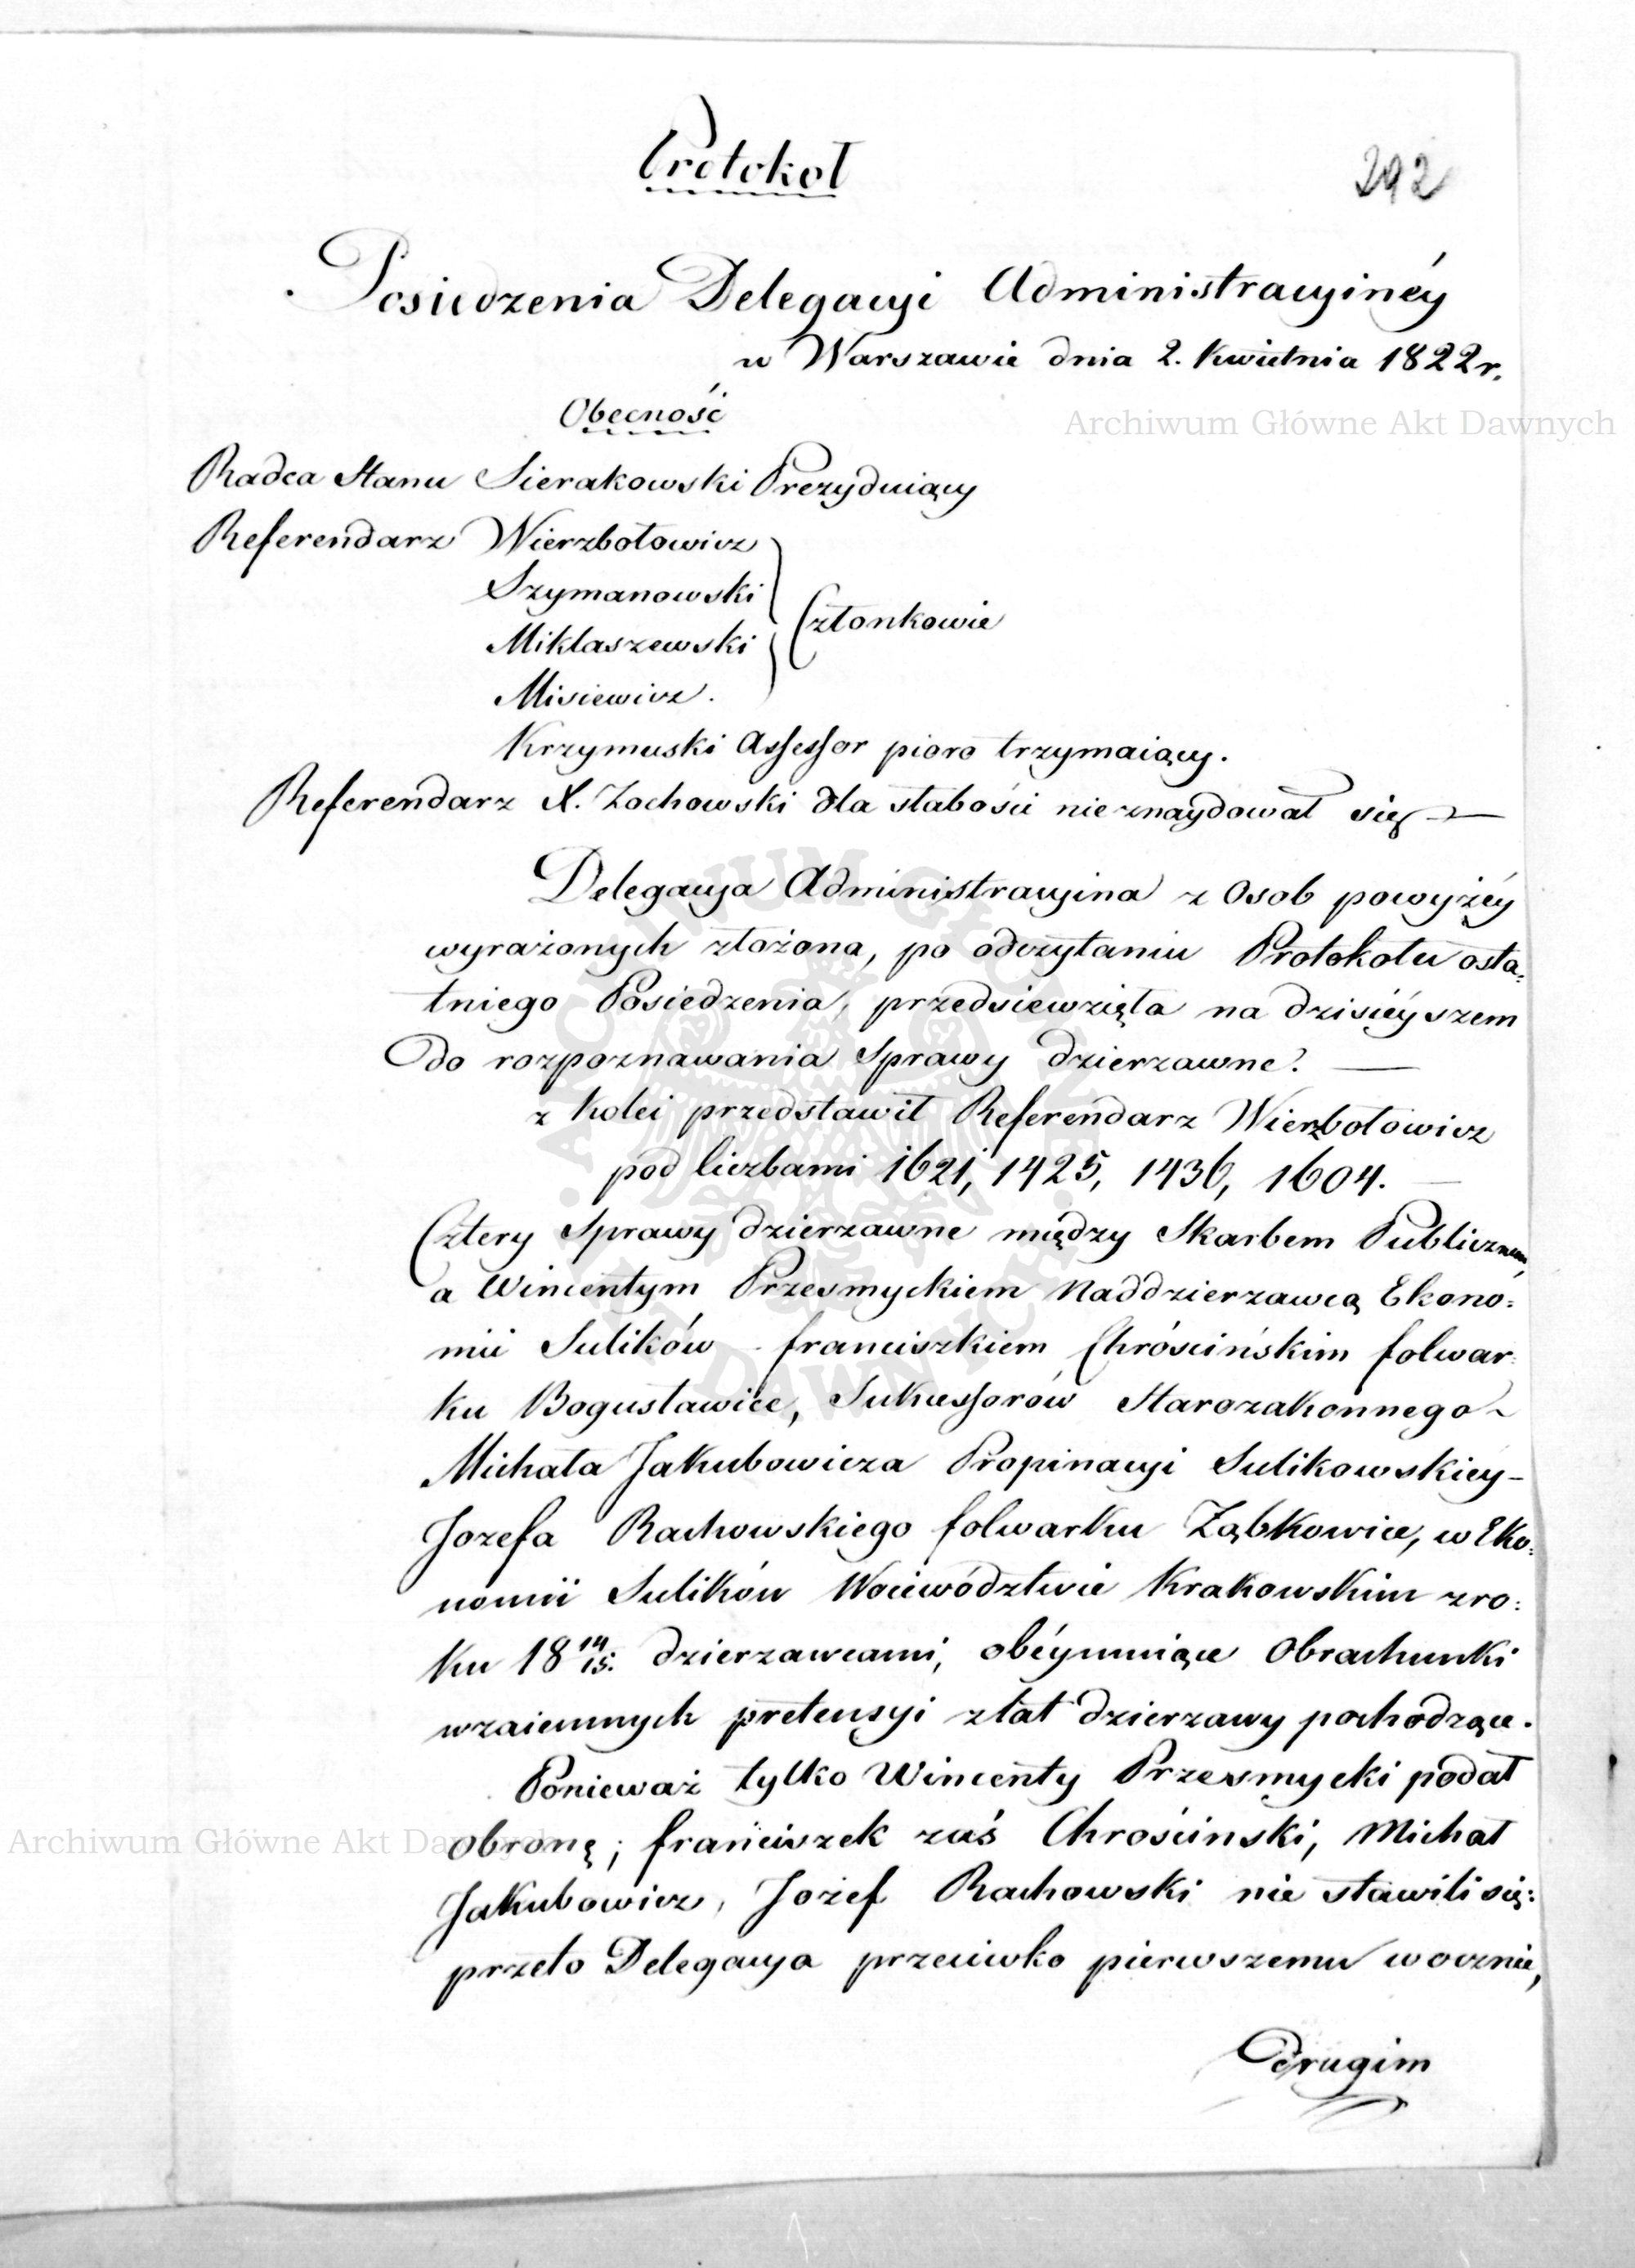 Protokoł
292
Posiedzenia Delegacyi Administracyinéy
w Warszawie dnia 2. Kwietnia 1822 r.
Obecność
Archiwum Główne Akt Dawnych
Radca Stanu Sierakowski Prezyduiący
Referendarz Wierzbołowicz
Szymanowski
Członkowie
Miklaszewski
Misiewicz.
Krzymuski Assessor pioro trzymaiący.
Referendarz X. Żochowski dla słabości nieznaydował się —
Delegacya Administracyina z Osob powyżéy
wyrażonych złożona, po odczytaniu Protokołu osta=
tniego Posiedzenia, przedsiewzięła na dzisiéyszem
do rozpoznawania Sprawy dzierzawne. —
z Kolei przedstawił Referendarz Wierzbołowicz
pod liczbami 1621, 1425, 1436, 1604. —
Cztery Sprawy dzierzawne między Skarbem Publicznem,
a Wincentym Przesmyckiem Naddzierzawcą Ekono=
mii Sulików – franciszkiem Chróścińskim folwar=
ku Bogusławice, Sukcessorów Starozakonnego –
Michała Jakubowicza Propinacyi Sulikowskiey –
Jozefa Rachowskiego folwarku Ząbkowice, w Eko=
nomii Sulików Woiewództwie Krakowskim z ro=
ku 18 14/15. dzierzawcami, obéymuiące Obrachunki
wzaiemnych pretensyi z łat dzierzawy pochodzące.
Ponieważ tylko Wincenty Przesmycki podał
Archiwum Główne Akt Dawnych
Obronę; franciszek zaś Chrościnski, Michał
Jakubowicz, Jozef Rachowski nie stawili się:
przeto Delegacya przeciwko pierwszemu w ocznie,
drugim